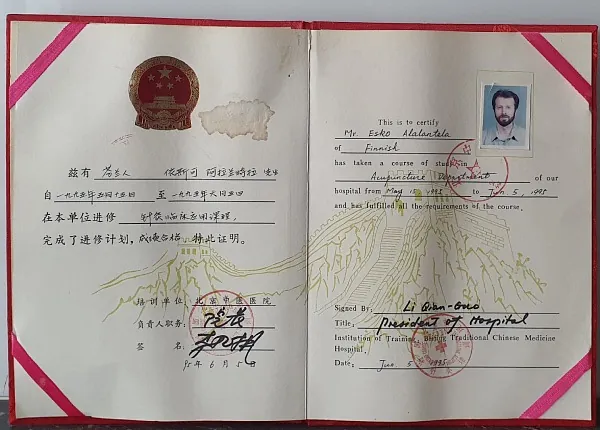 兹有 芬兰人 依斯可 阿拉兰特拉 先生
自一九九五年五月十五日 至一九九五年六月五日
在本单位进修 针灸临床应用课程,
完成了进修计划,成绩合格 特此证明。
培训单位: 北京中医医院
负责人职务: 院长
签 名:
95年 6月 5日
This is to certify
Mr. Esko Alalantela
of Finnish
has taken a course of study in
Acupuncture Department of our
hospital from May 15 1995 to Jun 5, 1995
and has fulfilled all the requirements of the course.
Signed By: Li Qian-Guo
Title: President of Hospital
Institution of Training: Beijing Traditional Chinese Medicine
Hospital.
Date: Jun 5 1995